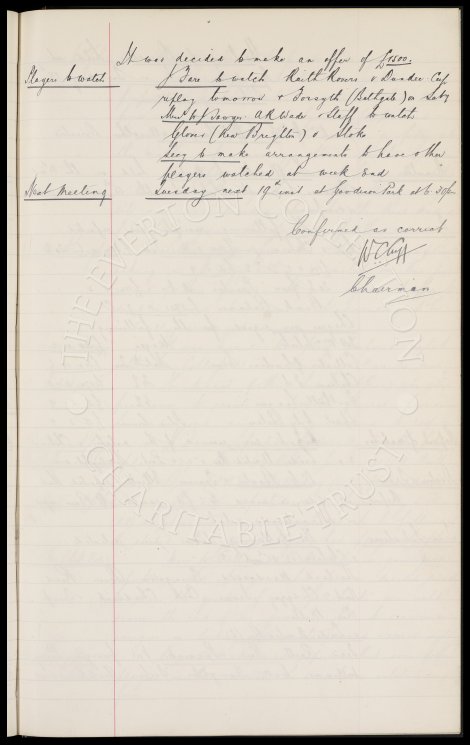 It was decided to make an offer of £1500.
Players to watch J Fare to watch Raith Rovers v Dundee Cup
replay tomorrow & Forsyth (Bathgate) on Saty
Messrs W J Sawyer A R Wade & Staff to watch
Glover (New Brighton) v Stoke
Secy to make arrangements to have other
players watched at week end
Next Meeling Tuesday next 19th inst at Goodison Park at 6.30pm
Confirmed as correct
W C Cuff
Chairman
THE EVERTON COLLECTION
CHARITABLE TRUST